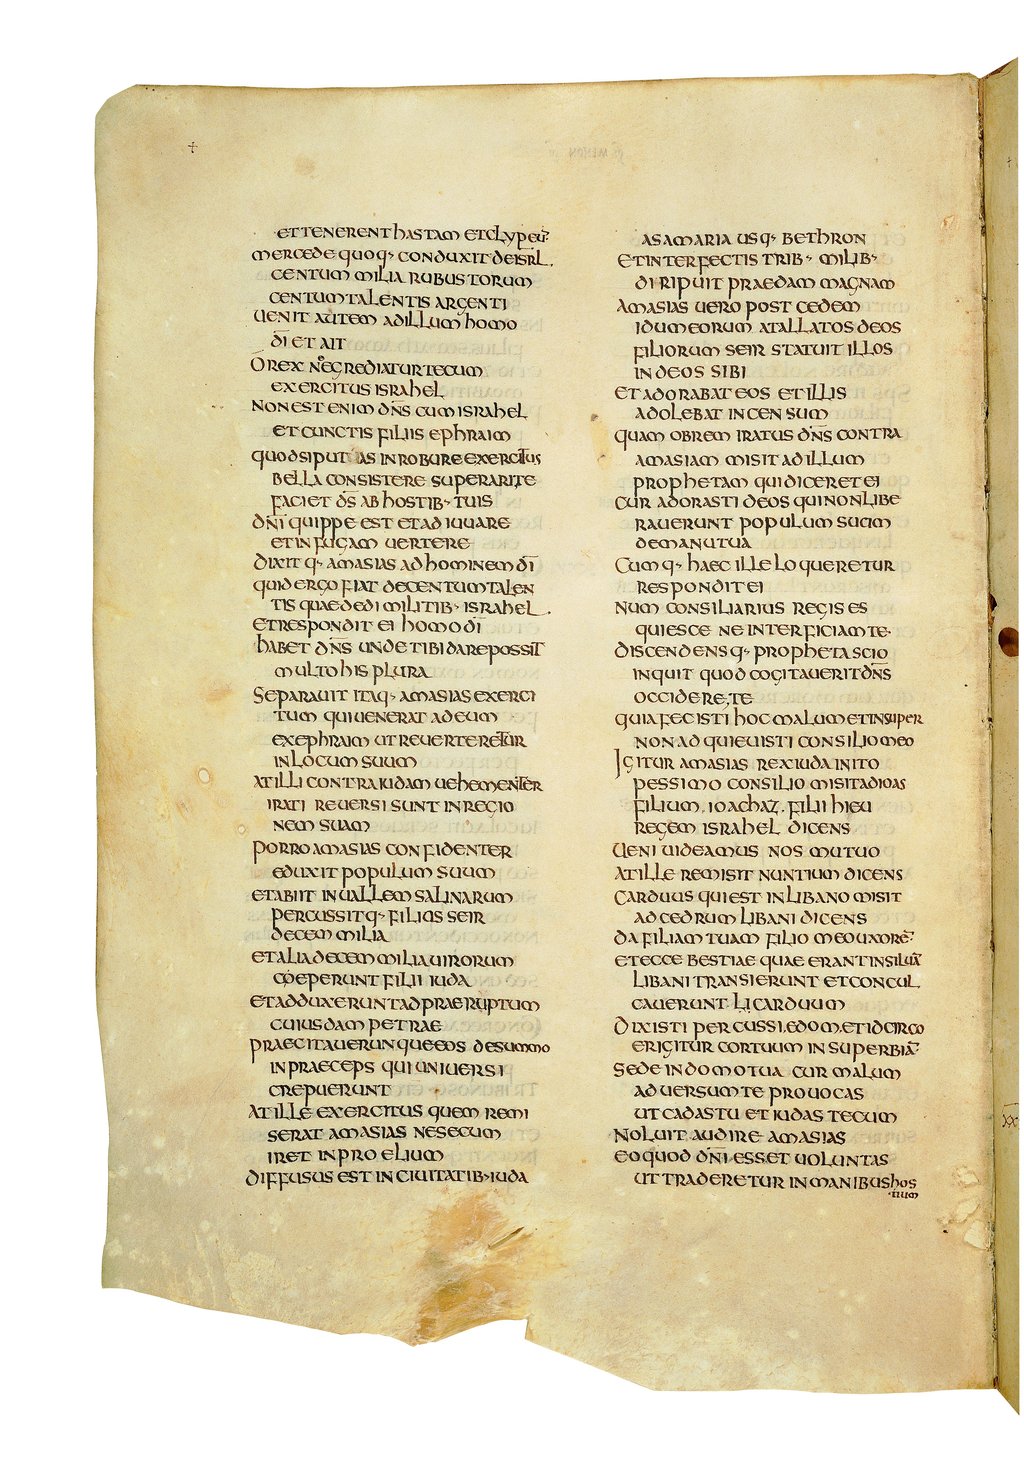 et tenerent hastam et clypeū
mercede quoq· conduxit de isrl̄
centum milia rubustorum
centum talentis argenti
uenit autem ad illum homo
dī et ait
O rex nē egrediatur tecum
exercitus israhel
non est enim dn̄s cum israhel
et cunctis filiis ephraim
quod si putas in robure exercitus
bella consistere superari te
faciet ds̄ ab hostib· tuis
dn̄i quippe est et adiuuare
et in fugam uertere
dixit q· amasias ad hominem dī
quid ergo fiat de centum talen
tis quae dedi militib· israhel
et respondit ei homo dī
habet dn̄s unde tibi dare possit
multo his plura
Separauit itaq· amasias exerci
tum qui uenerat ad eum
ex ephraim ut reuerteretur
in locum suum
at illi contra iudam uehementer
irati reuersi sunt in regio
nem suam
porro amasias confidenter
eduxit populum suum
et abiit in uallem salinarum
percussit q· filios seir
decem milia
et alia decem milia uirorum
coeperunt filii iuda
et adduxerunt ad praeruptum
cuiusdam petrae
praecitauerunque eos de summo
in praeceps qui uniuersi
crepuerunt
at ille exercitus quem remi
serat amasias ne secum
iret in proelium
diffusus est in ciuitatib· iuda
a samaria usq· bethron
et interfectis trib· milib·
diripuit praedam magnam
amasias uero post cedem
idumeorum at allatos deos
filiorum seir statuit illos
in deos sibi
et adorabat eos et illis
adolebat incensum
quam obrem iratus dn̄s contra
amasiam misit ad illum
prophetam qui diceret ei
cur adorasti deos qui non libe
rauerunt populum suum
de manu tua
Cum q· haec ille loqueretur
respondit ei
num consiliarius regis es
quiesce ne interficiam te·
discendens q· propheta scio
inquit quod cogitauerit dn̄s
occidere te
quia fecisti hoc malum et insuper
non adquieuisti consilio meo
Igitur amasias rex iuda inito
pessimo consilio misit ad ioas
filium . ioachaz . filii hieu
regem israhel dicens
ueni uideamus nos mutuo
at ille remisit nuntium dicens
carduus qui est in libano misit
ad cedrum libani dicens
da filiam tuam filio meo uxorē
et ecce bestiae quae erant in siluā
libani transierunt et concul
cauerunt carduum
dixisti percussi edom et idcirco
erigitur cor tuum in superbiā
sede in domo tua cur malum
aduersum te prouocas
ut cadas tu et iudas tecum
noluit audire amasias
eo quod dn̄i esset uoluntas
ut traderetur in manibus hos
·tium